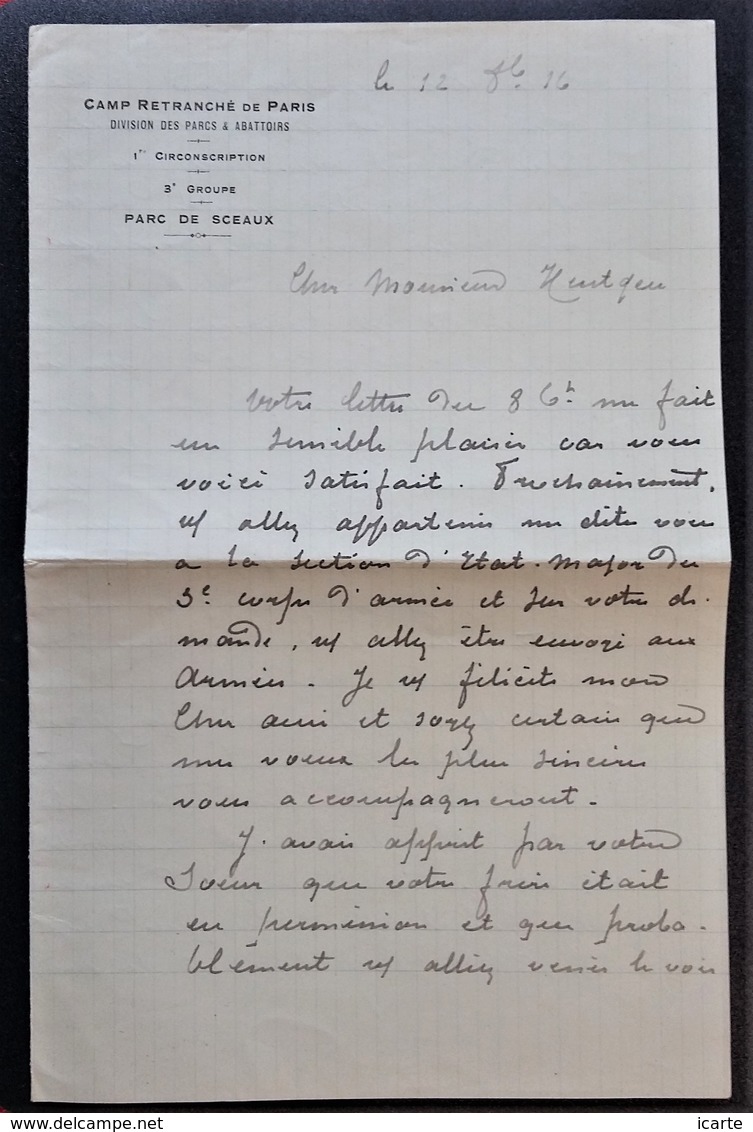 le 12 8bre 16
CAMP RETRANCHÉ DE PARIS
DIVISION DES PARCS & ABATTOIRS
1re CIRCONSCRIPTION
3e GROUPE
PARC DE SCEAUX
Cher Monsieur Hentgen
Votre lettre du 8 Ct me fait
un sensible plaisir car vous
voici satisfait. Prochainement,
vs allez appartenir me dites vous
a la section d'Etat-major du
3e corps d'armée et sur votre de-
mande, vs allez être envoyé aux
Armées. Je vs félicite mon
Cher ami et soyez certain que
mes voeux les plus sincères
vous accompagneront.
J'avais apprit par votre
Soeur que votre frère était
en permission et que proba-
blement vs alliez venir le voir
icarte